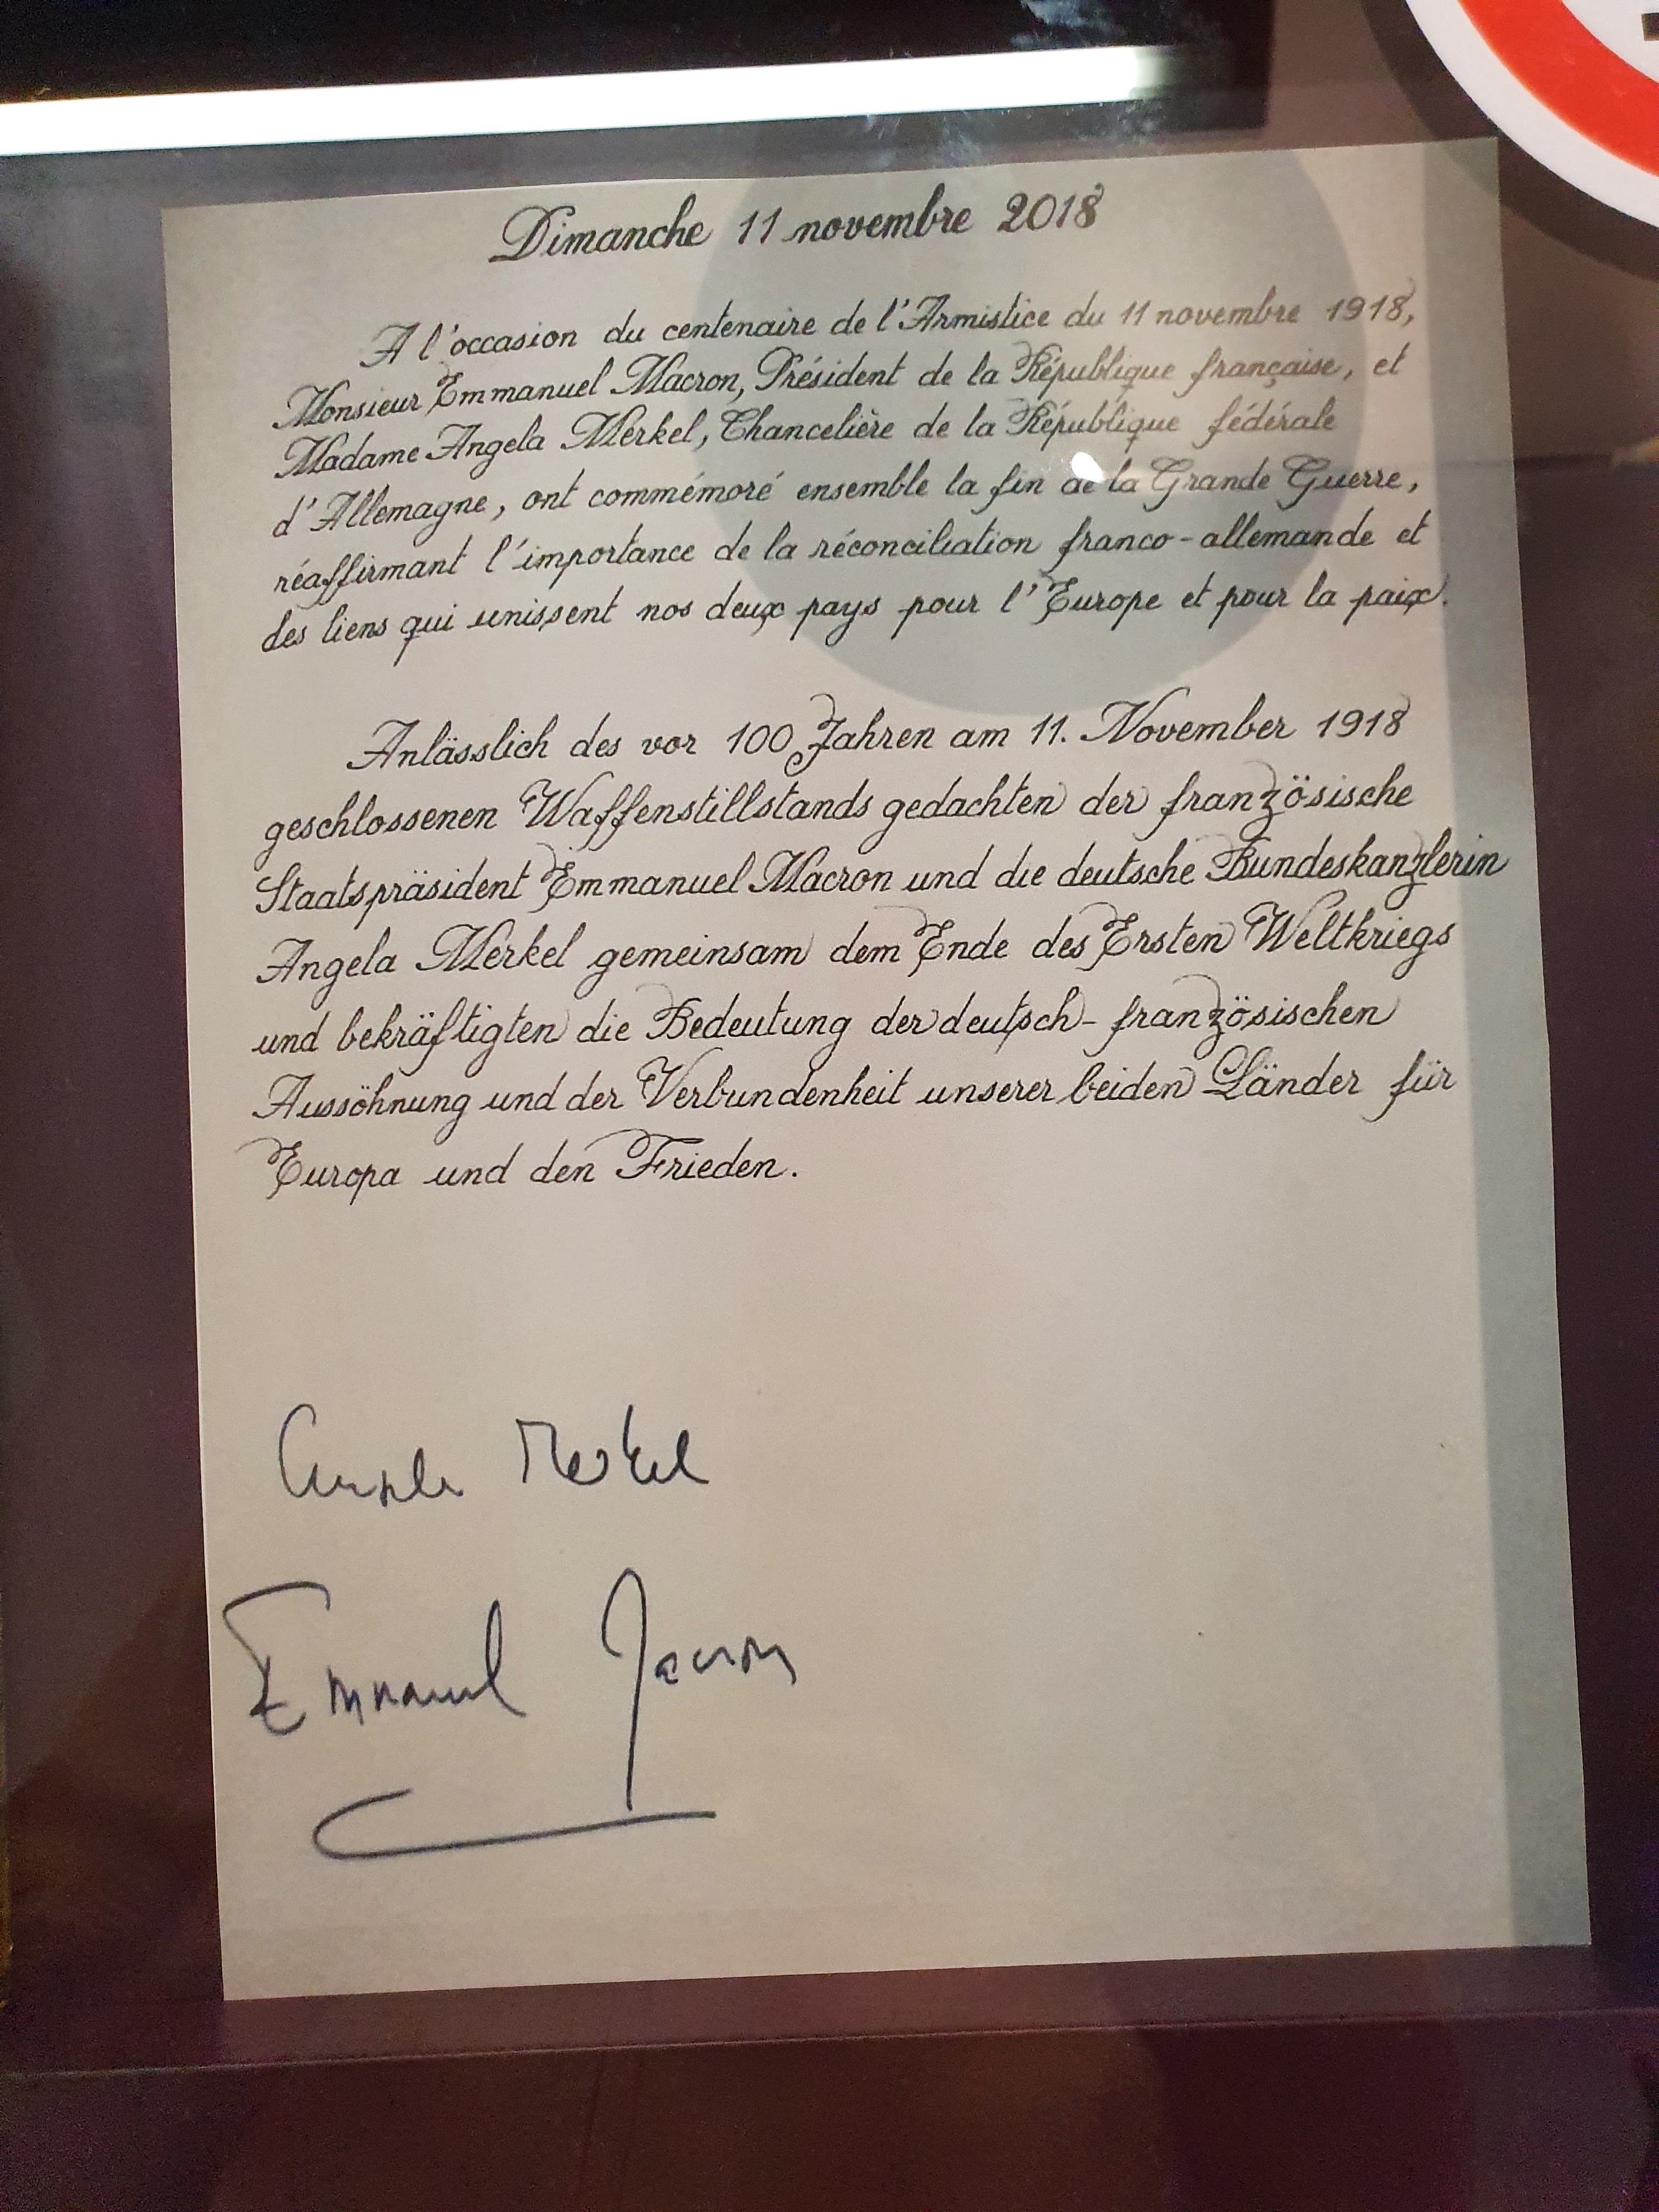 Dimanche 11 novembre 2018
A l'occasion du centenaire de l'Armistice du 11 novembre 1918,
Monsieur Emmanuel Macron, Président de la République française, et
Madame Angela Merkel, Chancelière de la République fédérale
d'Allemagne, ont commémoré ensemble la fin de la Grande Guerre,
réaffirmant l'importance de la réconciliation franco-allemande et
des liens qui unissent nos deux pays pour l'Europe et pour la paix.
Anlässlich des vor 100 Jahren am 11. November 1918
geschlossenen Waffenstillstands gedachten der französische
Staatspräsident Emmanuel Macron und die deutsche Bundeskanzlerin
Angela Merkel gemeinsam dem Ende des Ersten Weltkriegs
und bekräftigten die Bedeutung der deutsch-französischen
Aussöhnung und der Verbundenheit unserer beiden Länder für
Europa und den Frieden.
Angela Merkel
Emmanuel Macron